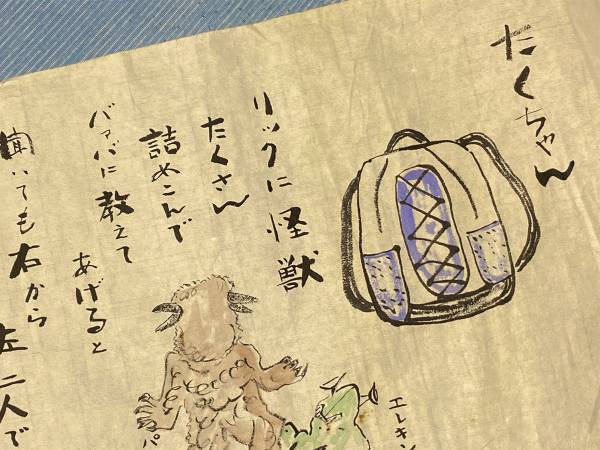 たくちゃん
リックに怪獣
たくさん
詰めこんで
バァバに教えて
あげると
聞いても右から
左二人で
エレキン
パ